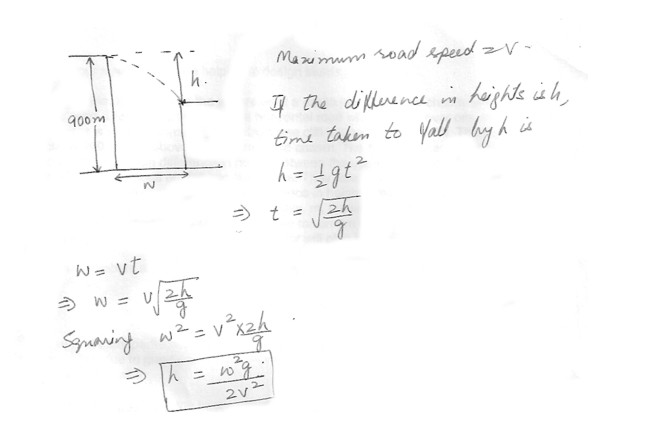 Maximum road speed = V.
h.
900m
If the difference in heights is h,
time taken to fall by h is
h = 1/2 gt²
w
⇒ t = √(2h/g)
w = vt
⇒ w = v√(2h/g)
Squaring w² = v² x 2h/g
⇒ h = w²g/2v²